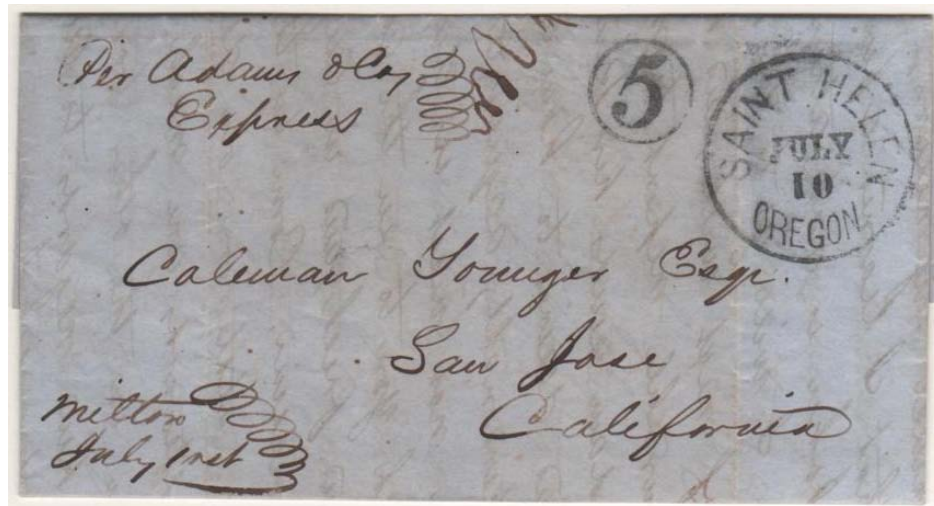 Per Adams & Co,
Express
5
SAINT HELEN
JULY
10
OREGON
Coleman Younger Esqr.
San Jose
California
Milton
July 1st